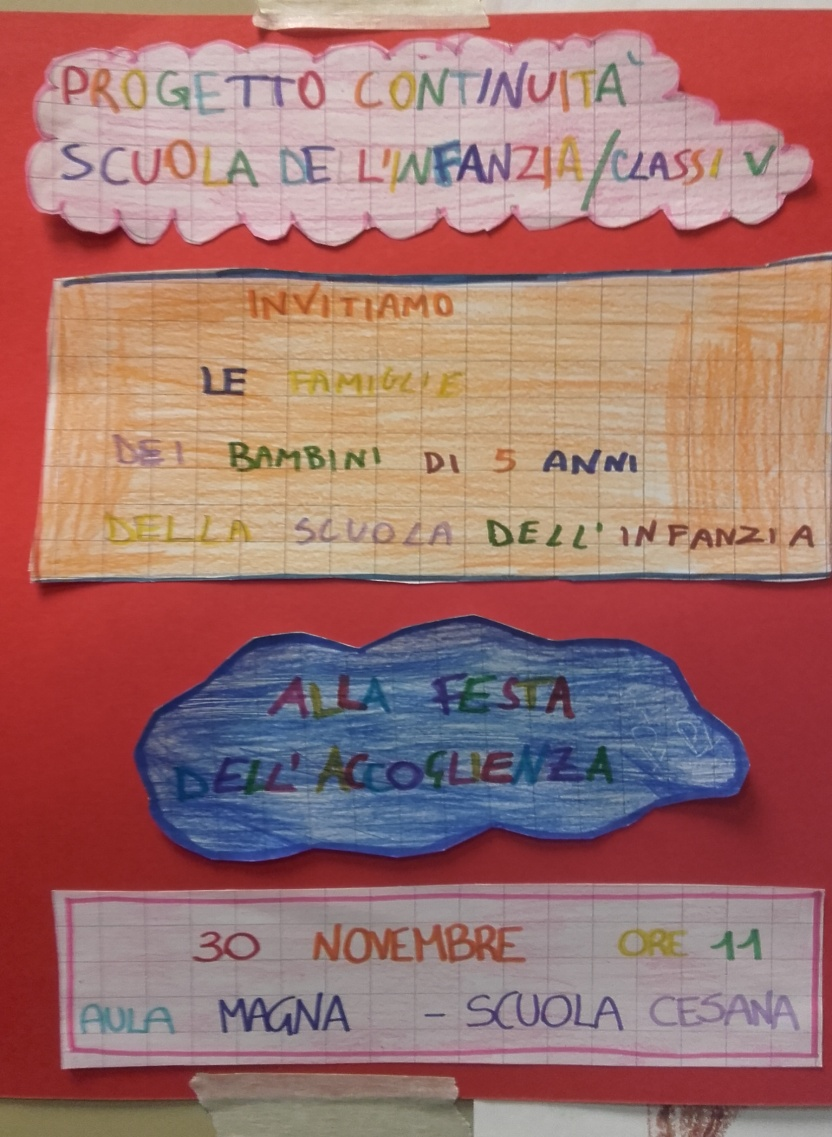 PROGETTO CONTINUITÀ
SCUOLA DELL'INFANZIA/CLASSI V
INVITIAMO
LE FAMIGLIE
DEI BAMBINI DI 5 ANNI
DELLA SCUOLA DELL'INFANZIA
ALLA FESTA
DELL'ACCOGLIENZA
30 NOVEMBRE ORE 11
AULA MAGNA - SCUOLA CESANA